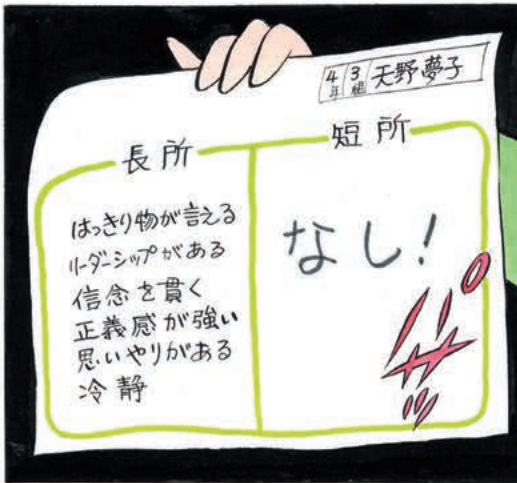 4年 3組 天野夢子
長所
はっきり物が言える
リーダーシップがある
信念を貫く
正義感が強い
思いやりがある
冷静
短所
なし!